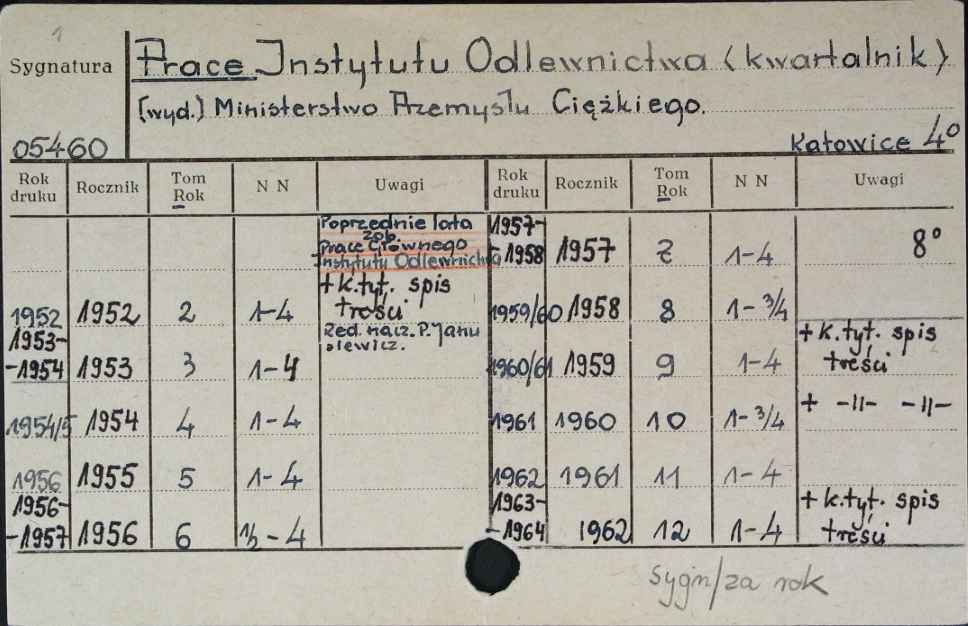 1
Sygnatura
Prace Instytutu Odlewnictwa (kwartalnik)
[wyd.] Ministerstwo Przemysłu Ciężkiego.
05460
Katowice 4°
Rok druku Rocznik Tom Rok N N Uwagi Rok druku Rocznik Tom Rok N N Uwagi
Poprzednie lata
zob.
Prace Głównego
Instytutu Odlewnictwa
1957-
-1958 1957 7 1-4 8°
1952 1952 2 1-4 + k. tyt. spis
treści
Red. nacz. P. Janu
siewicz.
1959/60 1958 8 1-3/4
1953-
-1954 1953 3 1-4
1960/61 1959 9 1-4 + k. tyt. spis
treści
1954/5 1954 4 1-4
1961 1960 10 1-3/4 + -||- -||-
1956 1955 5 1-4
1962 1961 11 1-4
1956-
-1957 1956 6 1/2-4
1963-
-1964 1962 12 1-4 + k. tyt. spis
treści
sygn/za rok